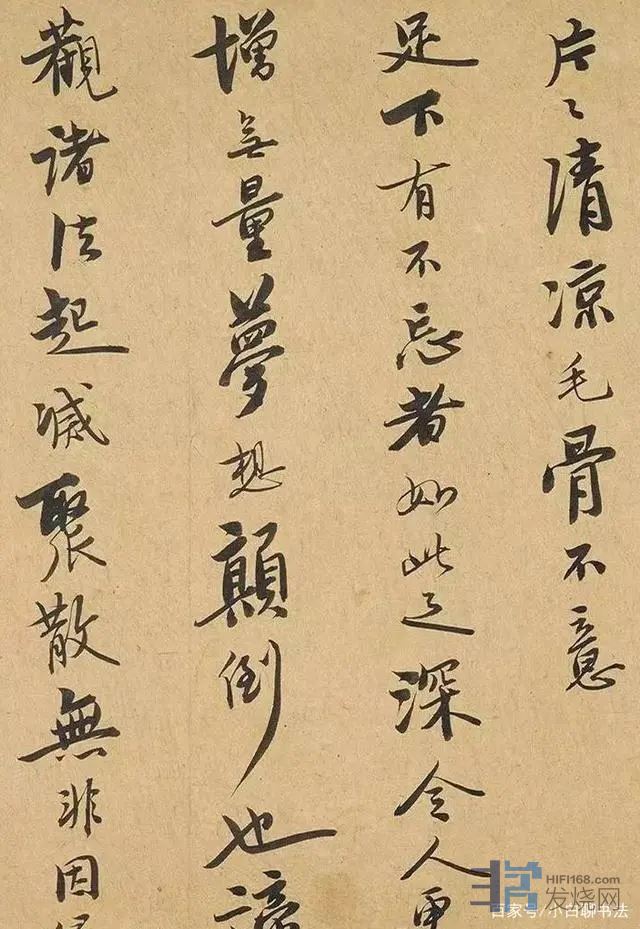 片々清凉毛骨不意
足下有不忘者如此之深令人更
增無量夢想顛倒也諦
觀諸法起滅聚散無非因
HIFI168.com
发烧网
百家号/小白聊书法